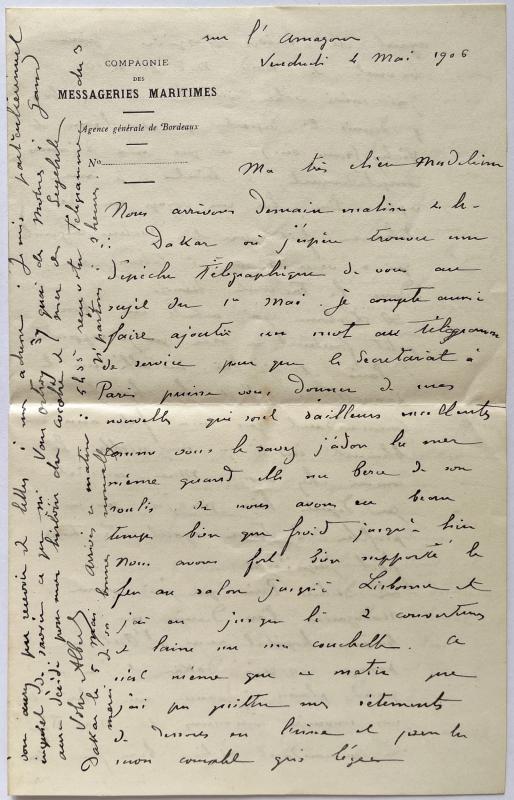 sur l'Amazone
Vendredi 4 Mai 1906
COMPAGNIE
DES
MESSAGERIES MARITIMES
Agence générale de Bordeaux
N°
Ma très chère Madeleine
Nous arrivons demain matin
Dakar où j'espère trouver une
dépêche télégraphique de vous au
sujet du 1er Mai je compte aussi
faire ajouter un mot au télégramme
de service pour que le Secrétariat à
Paris puisse vous donner de mes
nouvelles qui sont d'ailleurs excellentes
Comme vous le savez j'adore la mer
même quand elle me berce de son
roulis. Nous avons eu beau
temps bien que froid jusqu'à hier
Nous avons fort bien supporté le
feu au salon jusqu'à Lisbonne et
j'ai eu jusque là 2 couvertures
de laine sur ma couchette. Ce
n'est même que ce matin que
j'ai pu quitter mes vêtements
de dessous en laine et prendre
mon complet gris léger
vous aurez pu recevoir et lettre à mon adresse. Je suis particulièrement
de savoir ce que
aura décidé pour mon histoire
Votre Albert
Dakar le 5 Mai Arrivés ce matin à 5h55 reçu votre télégramme du 3
merci de vos bonnes nouvelles partons à heures